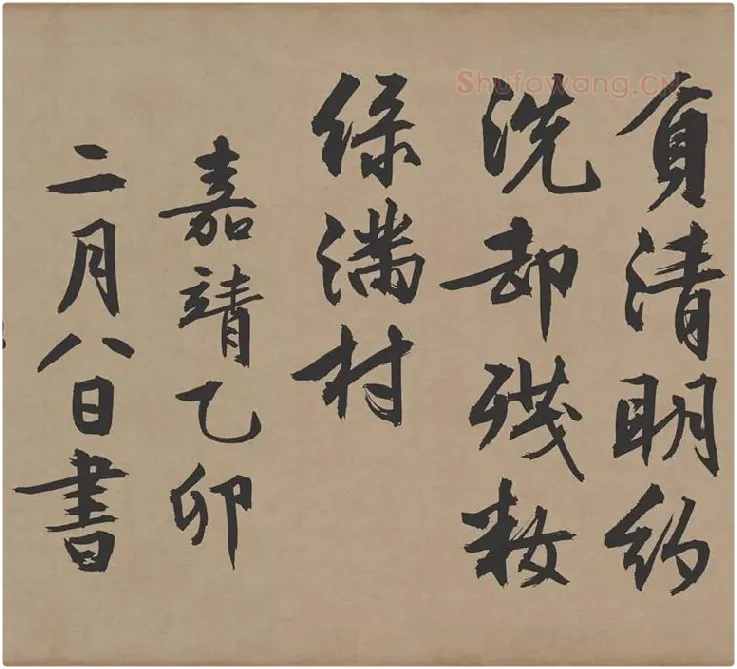 Shufawang.CN
負清明約
洗却殘妝
绿滿村
嘉靖乙卯
二月八日書